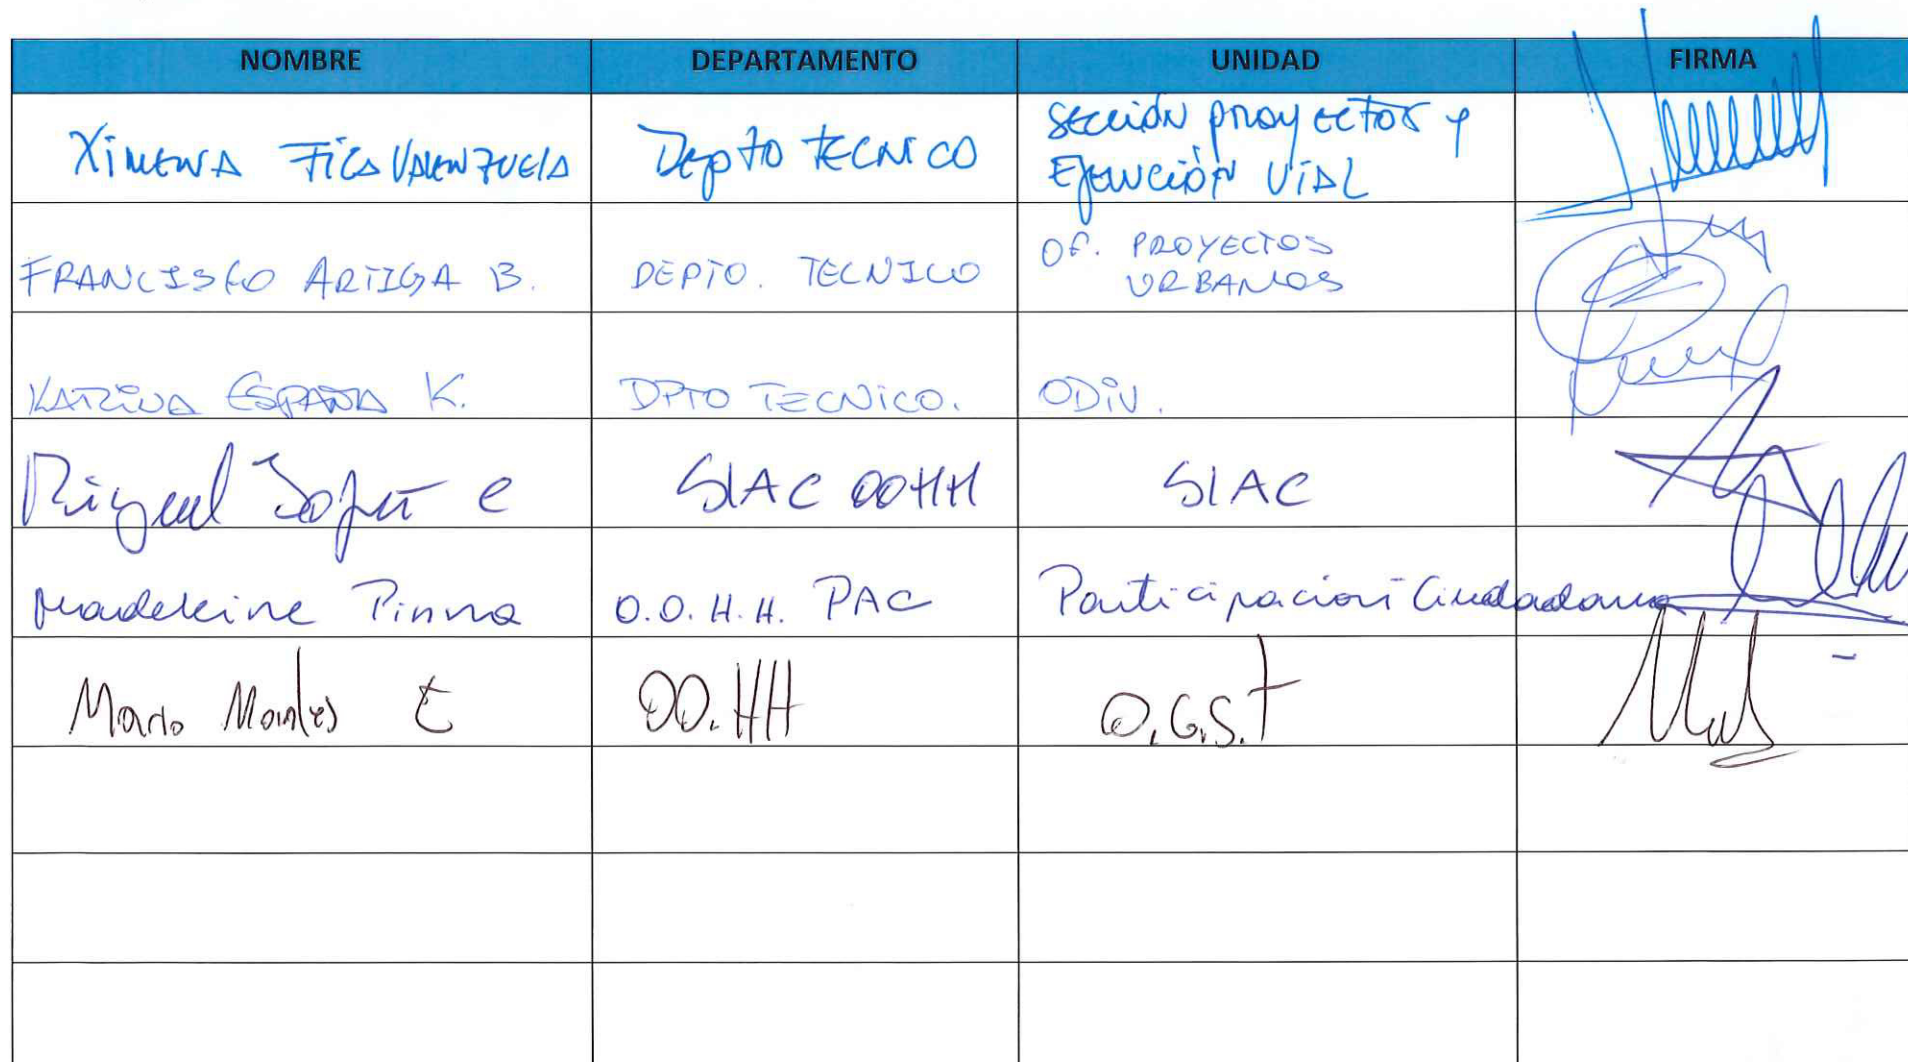 NOMBRE DEPARTAMENTO UNIDAD FIRMA
XIMENA FICA VALENZUELA Depto TECNICO Sección proyectos y
Ejecución VIAL
FRANCISCO ARTIGA B. DEPTO. TECNICO OF. PROYECTOS
URBANOS
KATRINA ESPAÑA K. DPTO TECNICO. ODIN.
Miguel Jofré C SIAC OOHH SIAC
Madeleine Pinna O.O.H.H. PAC Participación Ciudadana
Mario Morales E OO.HH O.G.S.T